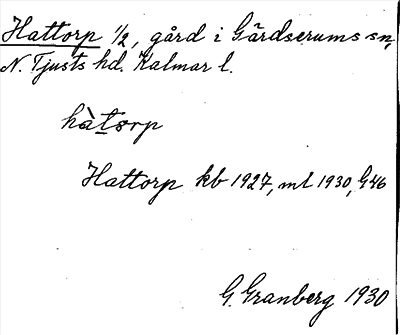 Hattorp 1/2, gård i Gärdserums sn,
N. Tjusts hd. Kalmar l.
hàtorp
Hattorp kb 1927, ml 1930, G46
G. Granberg 1930